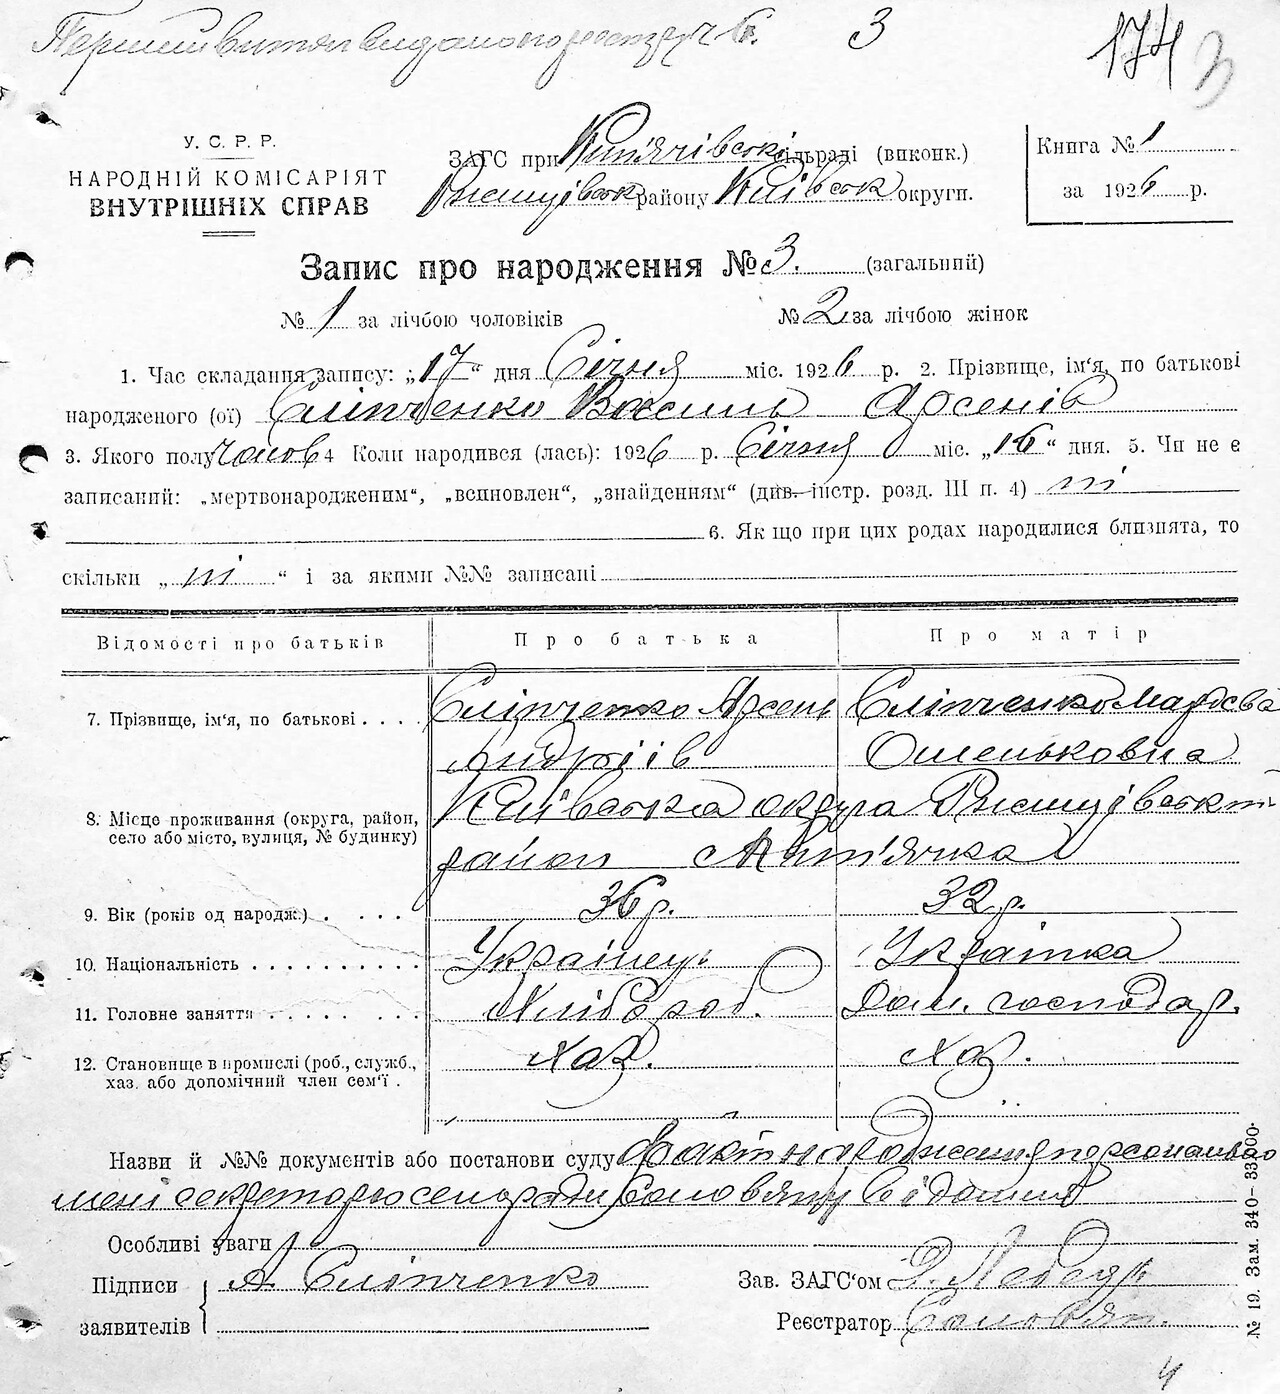 Перший витяг видано по реєстру № 3
174
3
У. С. Р. Р.
НАРОДНІЙ КОМІСАРІЯТ
ВНУТРІШНІХ СПРАВ
ЗАГС при сільраді (виконк.)
Ржищівськ району Київськ округи.
Книга № 1
за 1926 р.
Запис про народження № 3. (загальний)
№ 1 за лічбою чоловіків № 2 за лічбою жінок
1. Час складання запису: „17“ дня Січня міс. 1926 р. 2. Прізвище, ім‘я, по батькові
народженого (ої) Сліпченко Василь Арсенів
3. Якого полу Чолов 4 Коли народився (лась): 1926 р. Січня міс. „16“ дня. 5. Чи не є
записаний: „мертвонародженим“, „всиновлен“, „знайденням“ (див. інстр. розд. III п. 4) ні
6. Як що при цих родах народилися близнята, то
скільки „ні“ і за якими №№ записані
Відомості про батьків Про батька Про матір
7. Прізвище, ім‘я, по батькові . . . . Сліпченко Арсень Андріїв Сліпченко
8. Місце проживання (округа, район, село або місто, вулиця, № будинку) Київська округа Ржищівський район
9. Вік (років од народж.) . . . . 36 р. 32 р.
10. Національність . . . . . . . . . . Українець Українка
11. Головне заняття . . . . . . . . Хлібороб. Дом. господар.
12. Становище в промислі (роб., служб., хаз. або допомічний член сем‘ї . Хаз. Хаз.
Назви й №№ документів або постанови суду факт народження персонально
мені секретарю сельради
Особливі уваги
Підписи заявителів А Сліпченко
Зав. ЗАГС‘ом
Реєстратор
№ 19. Зам. 340—33000.
4